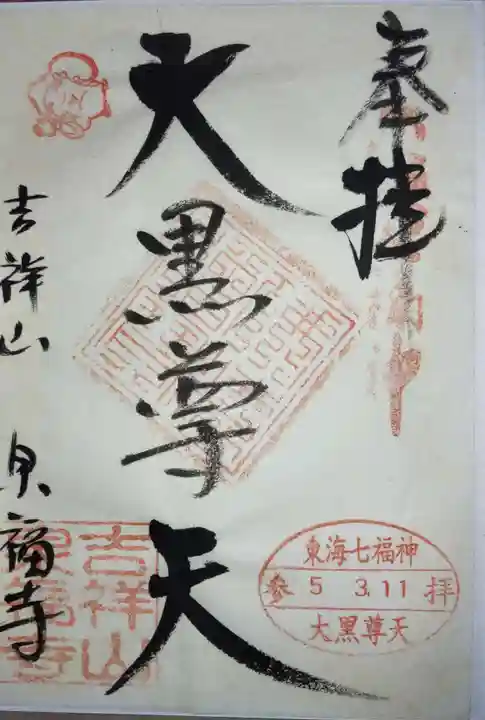 奉拝
大黒尊天
吉祥山 泉福寺
吉祥山
泉福寺
東海七福神
参 5 3.11 拝
大黒尊天